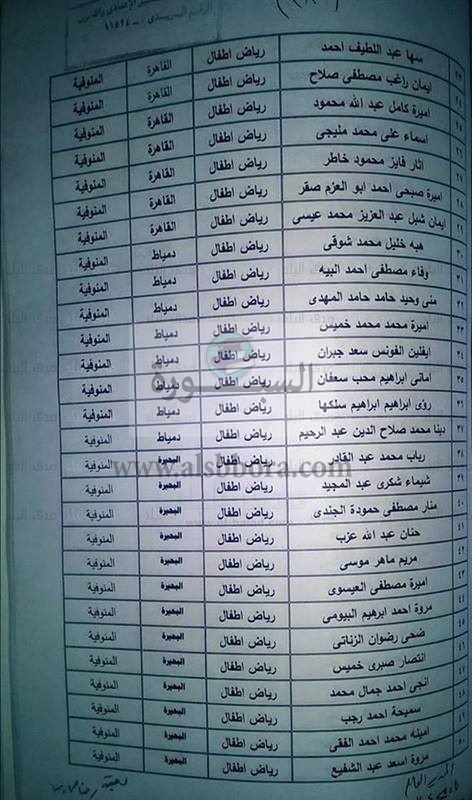 ١١٥٢٤
٢٣ سها عبد اللطيف احمد رياض اطفال القاهرة المنوفية
٢٤ ايمان راغب مصطفى صلاح رياض اطفال القاهرة المنوفية
٢٥ اميرة كامل عبد الله محمود رياض اطفال القاهرة المنوفية
٢٦ اسماء على محمد مليجى رياض اطفال القاهرة المنوفية
٢٧ اثار فايز محمود خاطر رياض اطفال القاهرة المنوفية
٢٨ اميرة صبحى احمد ابو العزم صقر رياض اطفال القاهرة المنوفية
٢٩ ايمان شبل عبد العزيز محمد عيسى رياض اطفال القاهرة المنوفية
٣٠ هبه خليل محمد شوقى رياض اطفال دمياط المنوفية
٣١ وفاء مصطفى احمد البيه رياض اطفال دمياط المنوفية
٣٢ منى وحيد حامد حامد المهدى رياض اطفال دمياط المنوفية
٣٣ اميرة محمد محمد خميس رياض اطفال دمياط المنوفية
٣٤ ايفلين الفونس سعد جبران رياض اطفال دمياط المنوفية
٣٥ امانى ابراهيم محب سعفان رياض اطفال دمياط المنوفية
٣٦ رؤى ابراهيم ابراهيم سلكها رياض اطفال دمياط المنوفية
٣٧ دينا محمد صلاح الدين عبد الرحيم رياض اطفال دمياط المنوفية
٣٨ رباب محمد عبد القادر رياض اطفال البحيرة المنوفية
٣٩ شيماء شكرى عبد المجيد رياض اطفال البحيرة المنوفية
٤٠ منار مصطفى حمودة الجندى رياض اطفال البحيرة المنوفية
٤١ حنان عبد الله عزب رياض اطفال البحيرة المنوفية
٤٢ مريم ماهر موسى رياض اطفال البحيرة المنوفية
٤٣ اميرة مصطفى العيسوى رياض اطفال البحيرة المنوفية
٤٤ مروة احمد ابرهيم البيومى رياض اطفال البحيرة المنوفية
٤٥ ضحى رضوان الزناتى رياض اطفال البحيرة المنوفية
٤٦ انتصار صبرى خميس رياض اطفال البحيرة المنوفية
٤٧ انجى احمد جمال محمد رياض اطفال البحيرة المنوفية
٤٨ سميحة احمد رجب رياض اطفال البحيرة المنوفية
٤٩ امينه محمد احمد الفقى رياض اطفال البحيرة المنوفية
٥٠ مروة اسعد عبد الشفيع رياض اطفال البحيرة المنوفية
السبورة
www.alsbbora.com